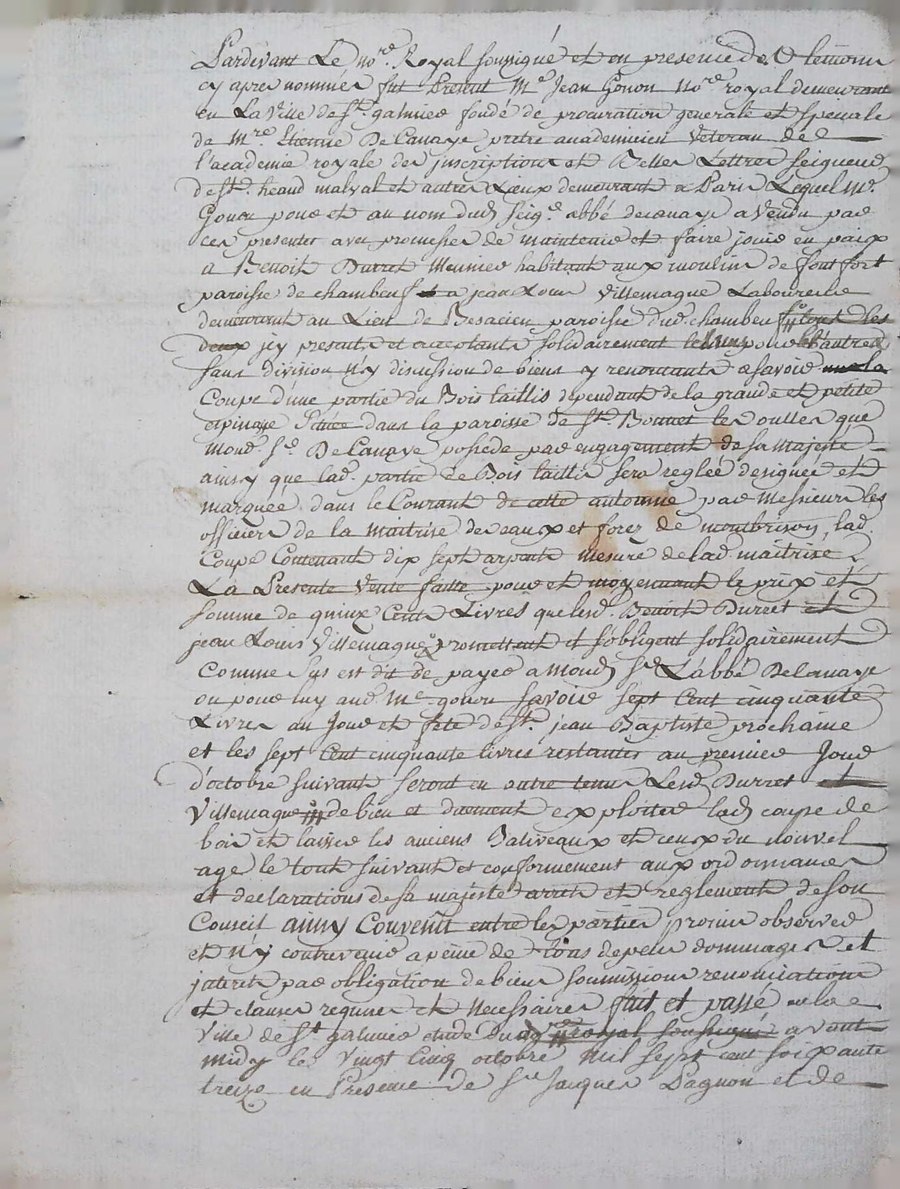 Pardevant Le no.re Royal soussigné et en presence des temoins
cy apres nommés fut Present M.e Jean Gonon No.re royal demeurant
en La Ville de S.t galmier fondé de procuration generale et speciale
de M.re Etienne De Canaye pretre academicien Veteran de
l'academie royale des jnscriptions et Belles Lettres seigneur
de S.t heand malval et autres Lieux demeurant a Paris Lequel M.e
Gonon pour et au nom dud. seig.r abbé de canaye a Vendu par
ces presentes avec promesses de maintenir et faire jouir en paix
a Benoit Durret Meunier habitant aux moulins de fontfort
paroisse de chambeuf et a jean Louis Villemagne Laboureur
demeurant au Lieu de Besacien paroisse dud. chambeuf tous les
deux jcy presents et acceptants solidairement les uns pour les autres
sans division n'y discussion de biens y renoncants a savoir la
Coupe d'une partie du Bois taillis dependant de la grande et petite
espinasse Située dans la paroisse de S.t Bonnet les oulles que
mond. S.r De Canaye possede par engagement de sa Majesté
ainsy que lad. partie de Bois taillis sera reglée designée et
marquée dans le Courant de cette automne par Messieurs les
officiers de la maitrise des eaux et forez de montbrison, lad.
Coupe Contenant dix sept arpents mesure de lad. maitrise
La Presente Vente faitte pour et moyennant le prix et
somme de quinze Cents Livres que lesd. Benoit Durret et
jean Louis Villemagne promettent et s'obligent solidairement
Comme sus est dit de payer a Mond. S.r L'abbé De Canaye
ou pour luy aud. M.e gonon savoir sept Cent cinquante
Livres au Jour et fete de S.t jean Baptiste prochaine
et les sept Cent cinquante livres restantes au premier Jour
d'octobre suivant seront en outre tenus Lesd. Durret et
Villemagne de bien et duement exploiter lad. coupe de
bois et laisser les anciens Baliveaux et ceux du nouvel
age le tout suivant et conformement aux ordonnances
et declarations de sa majesté arrets et reglements de son
Conseil ainsy Convenu entre les parties promis observer
et n'y contrevenir a peine de tous depens dommages et
jnterets par obligation de biens soumissions renonciations
et clauses requises et Necessaires fait et passé en la
Ville de S.t galmier etude du no.re royal soussigné avant
midy le Vingt Cinq octobre Mil sept cent soixante
treize en Presence de S.r Jacques Pagnon et de